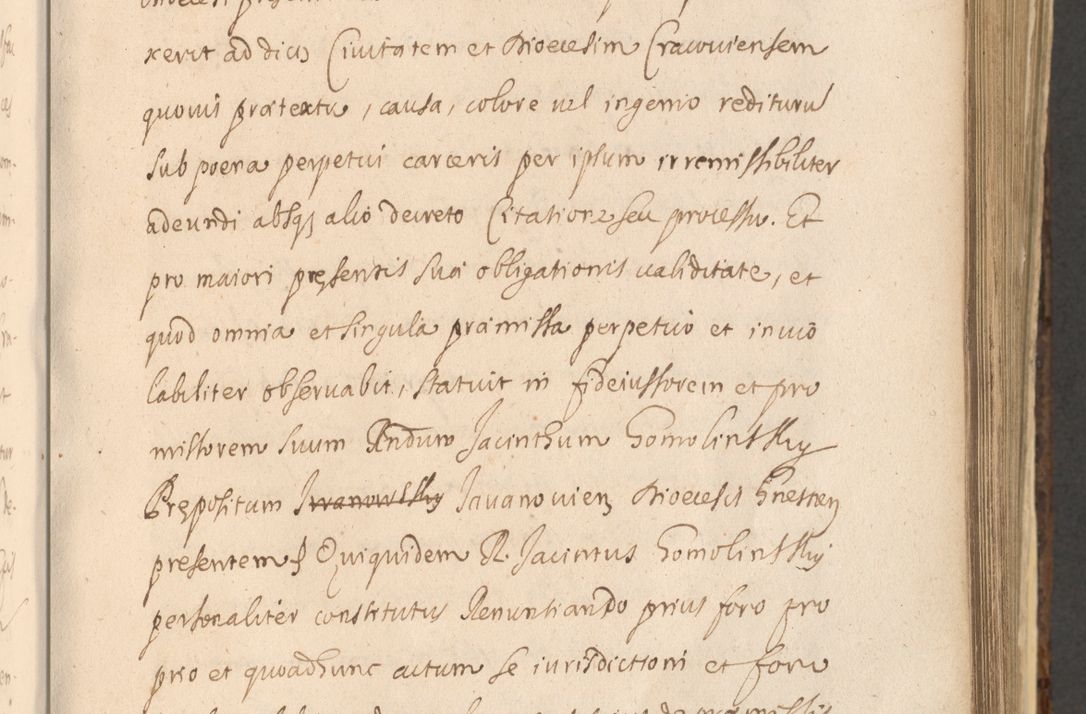 xerit ad dicz Ciuitatem et Dioecesim Cracouiensem
quouis prætextu, causa, colore uel ingenio rediturū
sub poena perpetui carceris per ipsum irremissibiliter
adeundi absqz alio decreto Citatione seu processu. Et
pro maiori pręsentis suæ obligationis ualiditate, et
quod omnia et singula præmissa perpetuo et inuio
labiliter obseruabit, statuit in fideiussorem et pro
missorem suum Rndum Jacinthum Gomolinsky
Prępositum Iwanowsky Iwanouien Dioecesis Gnesnen
presentem Quiquidem R. Jacintus Gomolinsky
personaliter constitutus Renuntiando prius foro pro
prio et quoad hunc actum se iurisdictioni et foro